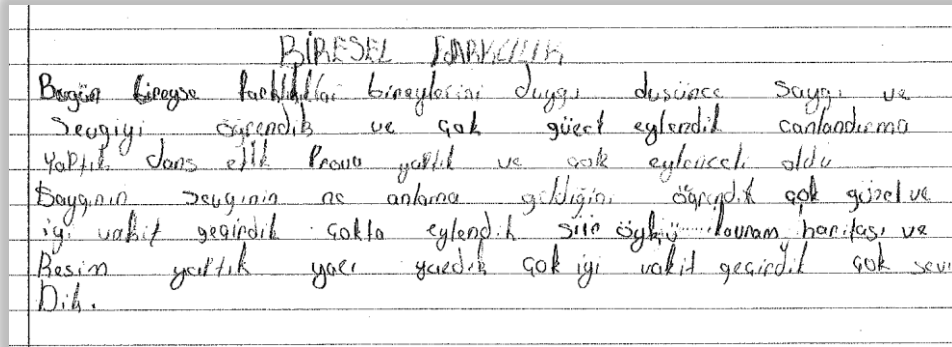 BİRESEL FARKLILIK
Bugün bireyse farklılıkları bireylerini duygu dusünce Saygı ve
Sevgiyi öğrendik ve çok güzel eylendik canlandırma
Yaptık dans ettik Prova yaptık ve çok eylenceli oldu
Saygının sevginin ne anlama geldiğini öğrendik çok güzel ve
iyi vakit geçirdik çokta eylendik şiir öykü kavram haritası ve
Resim yaptık yazı yazdık çok iyi vakit geçirdik çok sevi
Dik.